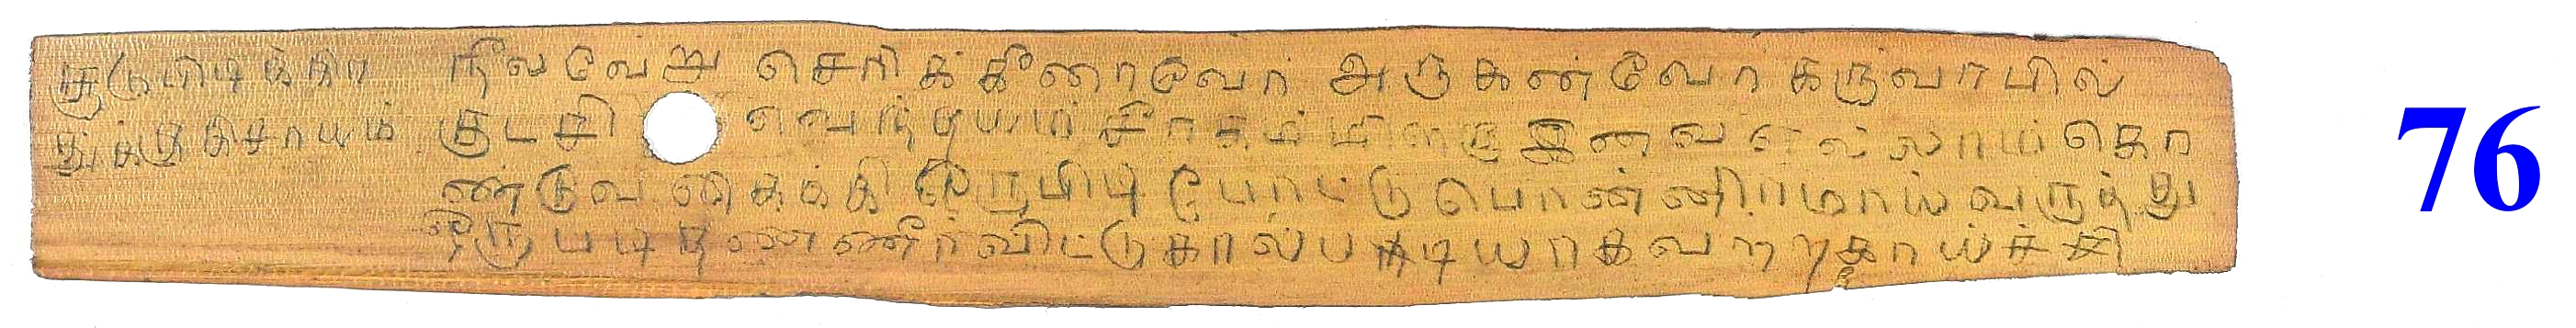 சூடுபிடிக்கிற நீலவேறு செரிக்கீரைவேர் அருகன்வேர் கருவாபில்
துக்குகிசாயம் குடசி வெந்தயம் சீரகம் மிளகு இவை எல்லாம் கொ
ண்டுவ ஒருபிடி போட்டு பொன்னிறமாய் வருத்து
ஒரு படி தண்ணீர் விட்டு கால் படியாக வற்ற காய்ச்சி
76